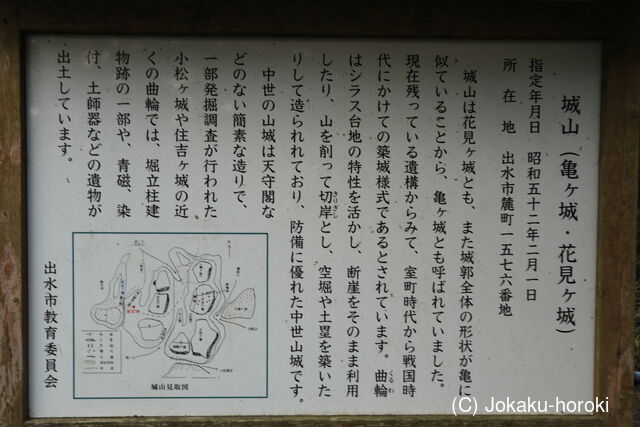 城山（亀ヶ城・花見ヶ城）
指定年月日　昭和五十二年二月一日
所在地　出水市麓町一五七六番地
城山は花見ヶ城とも、また城郭全体の形状が亀に
似ていることから、亀ヶ城とも呼ばれていました。
現在残っている遺構からみて、室町時代から戦国時
代にかけての築城様式であるとされています。曲輪
くるわ
はシラス台地の特性を活かし、断崖をそのまま利用
したり、山を削って切岸とし、空堀や土塁を築いた
きりぎし
りして造られれており、防備に優れた中世山城です。
中世の山城は天守閣な
どのない簡素な造りで、
一部発掘調査が行われた
小松ヶ城や住吉ヶ城の近
くの曲輪では、堀立柱建
物跡の一部や、青磁、染
付、土師器などの遺物が
出土しています。
城山見取図
出水市教育委員会
(C) Jokaku-horoki